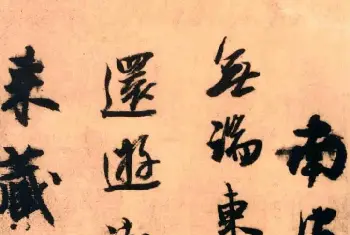 南
無端東
還遊
来藏